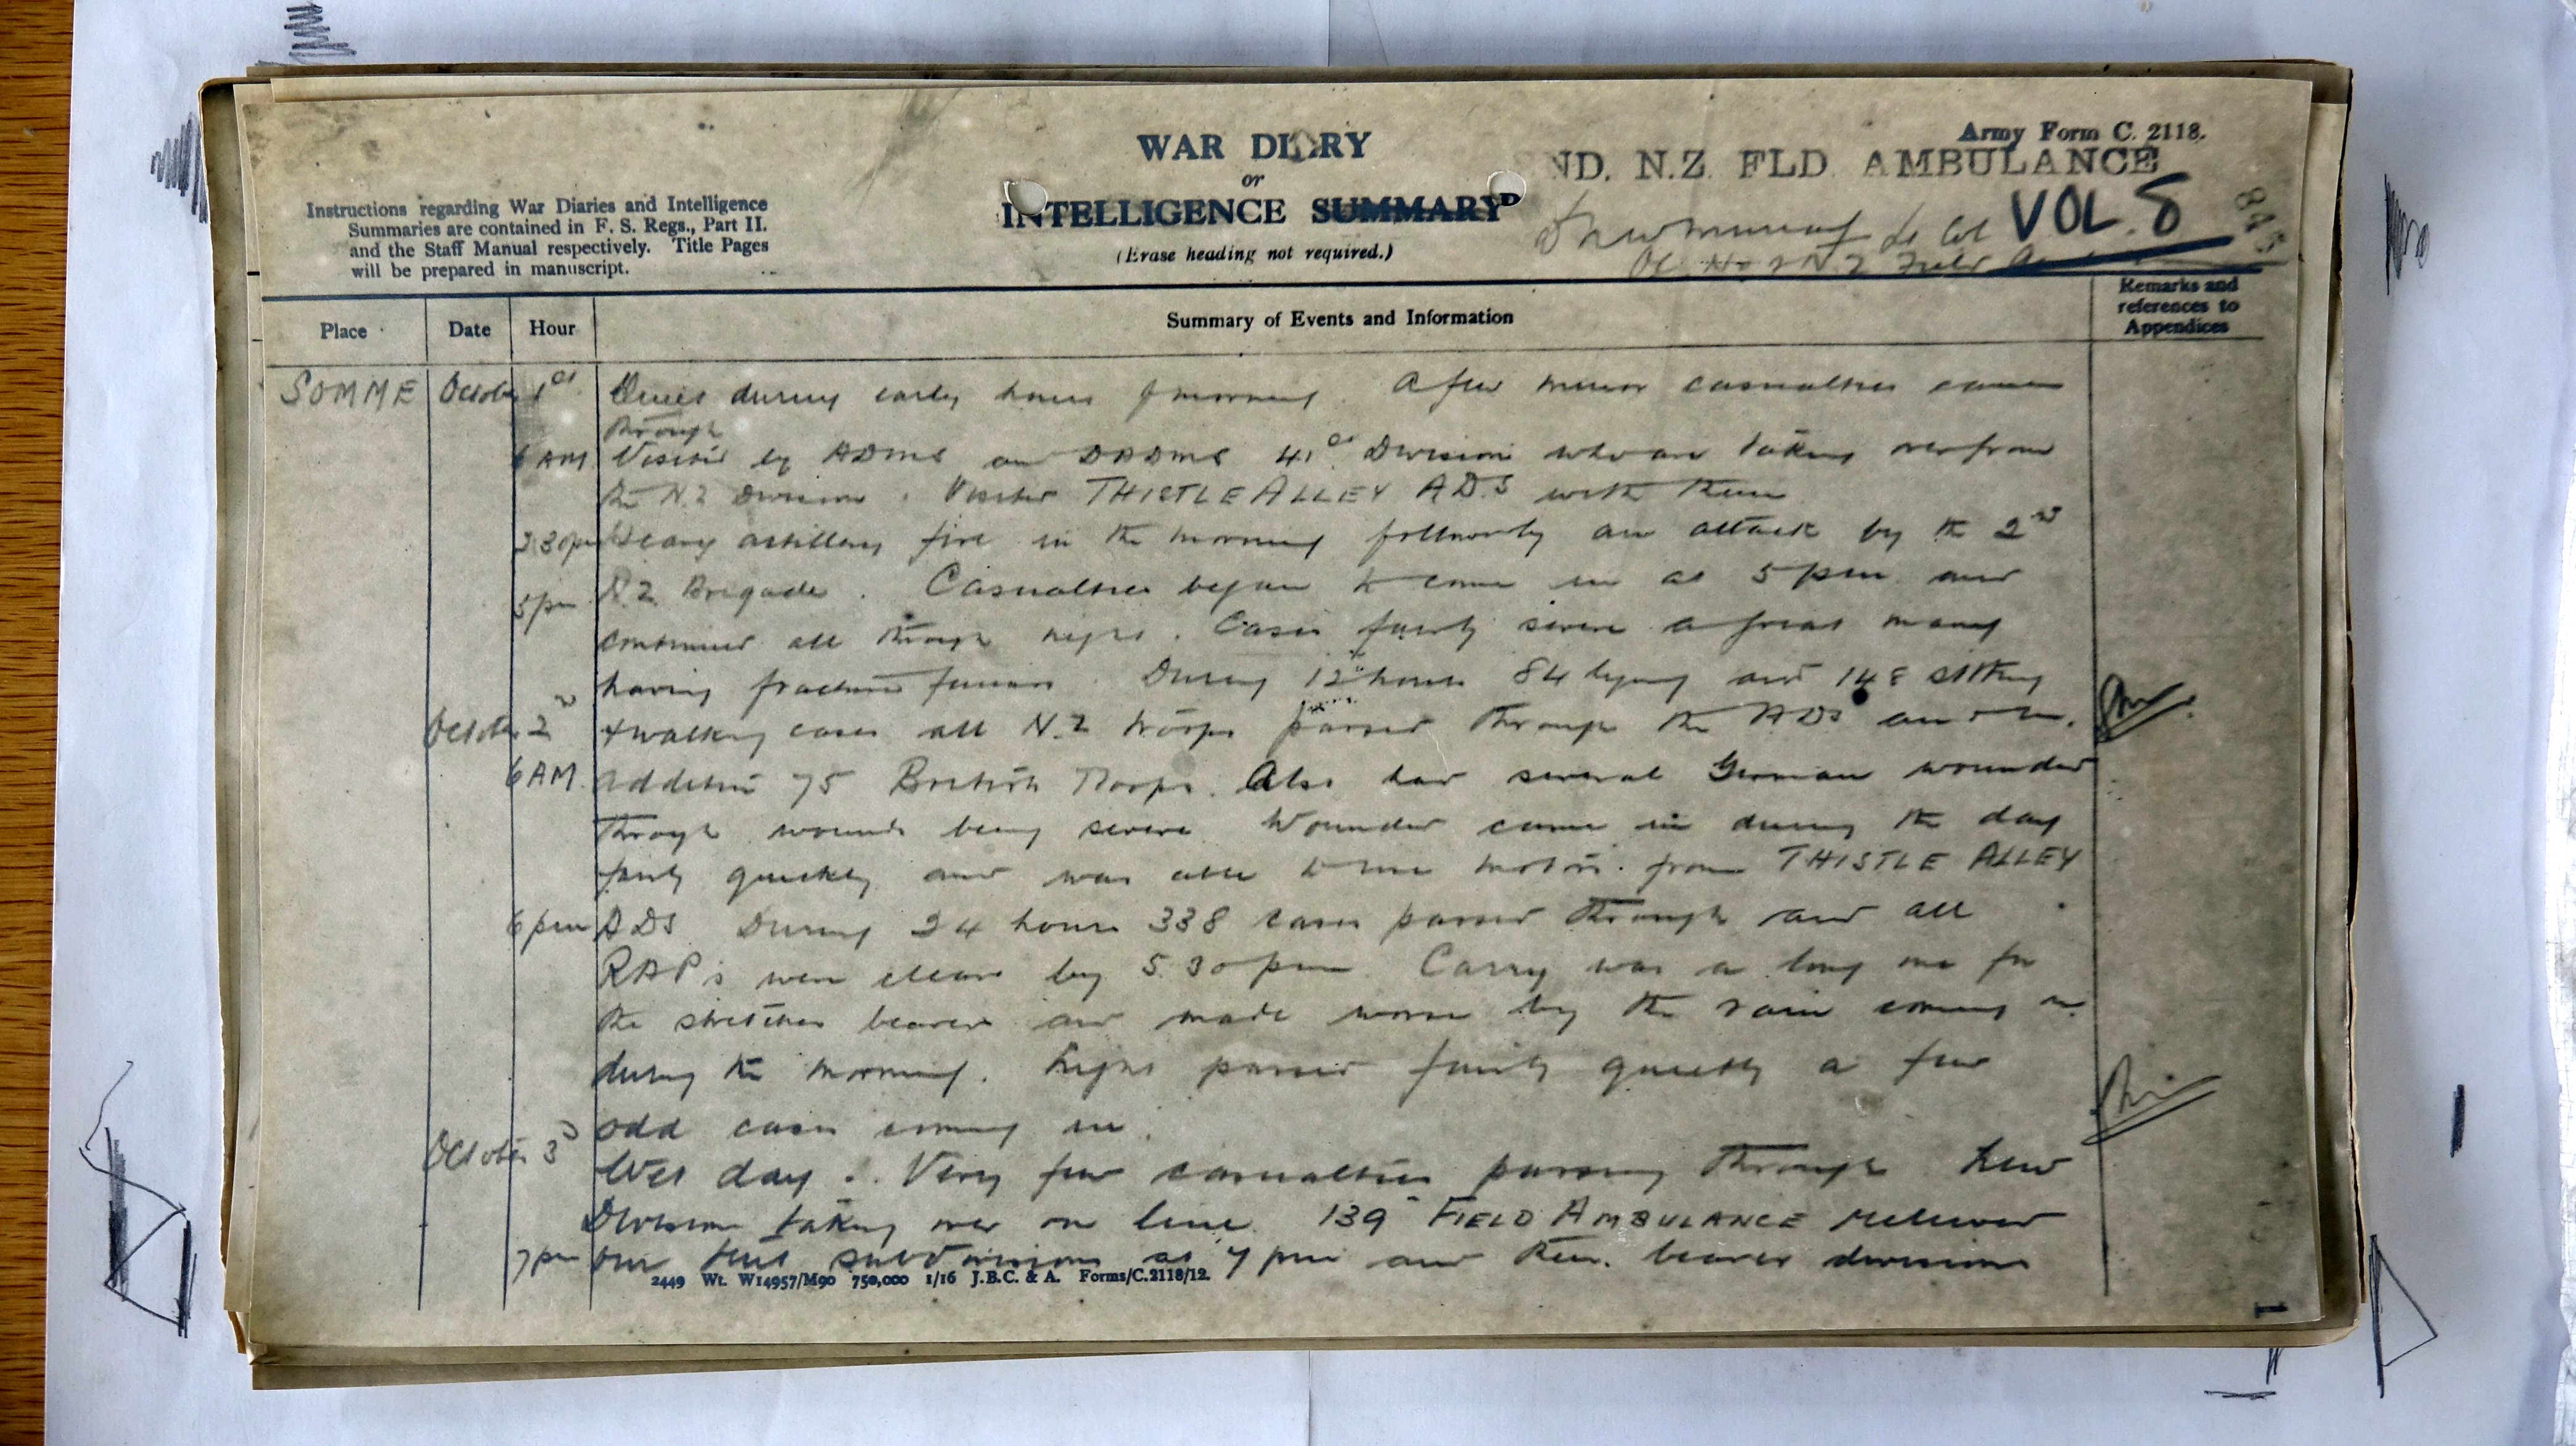 Army Form C. 2118.
WAR DIARY
ND. N.Z. FLD. AMBULANCE
or
INTELLIGENCE SUMMARY
VOL. 8
(Erase heading not required.)
Lt Col
OC No 2 N Z Field
Instructions regarding War Diaries and Intelligence
Summaries are contained in F. S. Regs., Part II.
and the Staff Manual respectively. Title Pages
will be prepared in manuscript.
Place Date Hour Summary of Events and Information Remarks and references to Appendices
SOMME October 1st Quiet during early hours of morning. A few minor casualties came
through
6 AM Visited by ADMS and DADMS 41st Division who are taking over from
the N.Z Division. Visited THISTLE ALLEY A.D.S with them
Heavy artillery fire in the morning followed by an attack by the 2nd
5pm N.Z. Brigade. Casualties began to come in at 5 pm and
continued all through night. Cases fairly severe a great many
having fractured femurs. During 12 hours 84 lying and 148 sitting
October 2nd & walking cases all N.Z troops passed through the ADS and in
6 AM addition 75 British Troops. Also had several German wounded
through wounds being severe. Wounded came in during the day
fairly quickly and was able to use motors from THISTLE ALLEY
6 pm ADS During 24 hours 338 cases passed through and all
RAP's were clear by 5.30 pm. Carry was a long one for
the stretcher bearers and made worse by the rain coming on
during the morning. Night passed fairly quietly a few
odd cases coming in.
October 3rd Wet day. Very few casualties passing through New
Division taking over our line. 139 FIELD AMBULANCE relieved
7 pm our tent subdivisions at 7 pm and their bearer divisions
2449 Wt. W14957/M90 750,000 1/16 J.B.C. & A. Forms/C.2118/12.